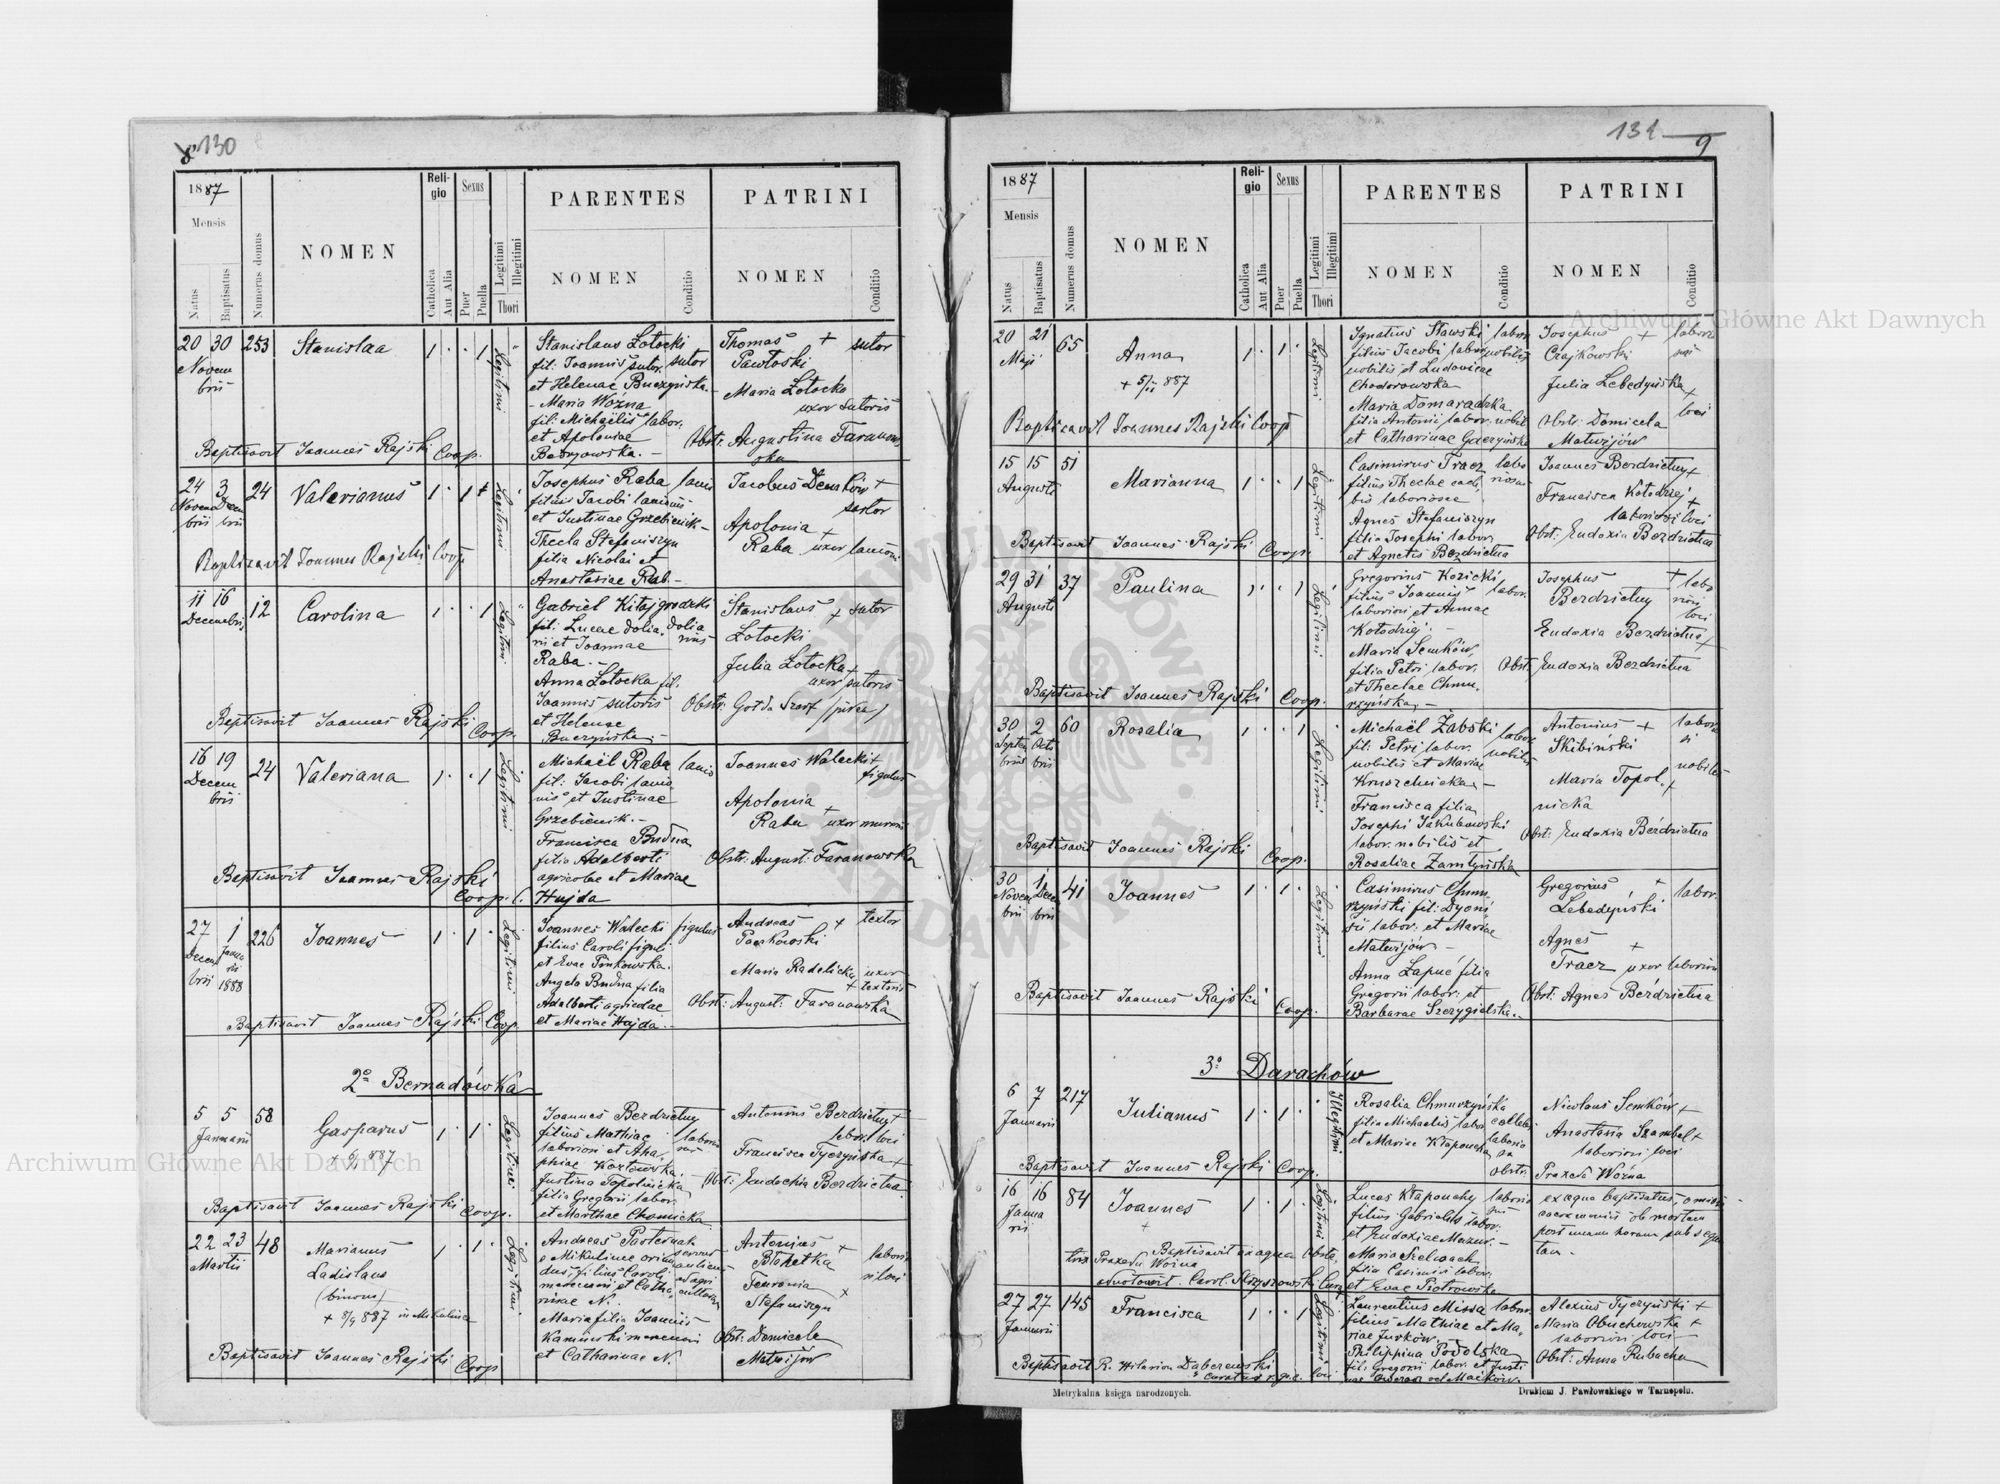 130
1887
Mensis
Natus
Baptisatus
Numerus domus
NOMEN
Religio
Catholica
Aut Alia
Sexus
Puer
Puella
Legitimi
Illegitimi
Thori
PARENTES
NOMEN
Conditio
PATRINI
NOMEN
Conditio
20 30 253 Stanislaa 1 1
Novem
bris
Legitimi
Stanislaus Łotocki
fil: Joannis sutor. sutor
et Helenae Buczyńska.
- Maria Woźna
fil: Michaëlis labor.
et Apoloniae
Thomas + sutor
Pawłoski
Maria Łotocka
uxor sutoris
Obst: Augustina Faranow
ska
Baptisavit Joannes Rajski Coop.
24 3 24 Valerianus 1 1
Novem Decem
bris bris
Legitimi
Josephus Raba lanio
filius Jacobi lanionis
et Justinae Grzebienik
Thecla Stefaniszyn
filia Nicolai et
Anastasiae Rab-
Jacobus Demków +
sartor
Apolonia +
Raba uxor lanionis
Baptisavit Joannes Rajski Coop
11 16 12 Carolina 1 1
Decembris
Legitimi
Gabriel Kitajgrodzki
fil: Lucae dolia. dolia
rii et Joannae rius
Raba.-
Anna Łotocka fil.
Joannis sutoris
et Helenae
Buczyńska.-
Stanislaus + sutor
Łotocki
Julia Łotocka +
uxor sutoris
Baptisavit Joannes Rajski Coop.
16 19 24 Valeriana 1 1
Decem
bris
Legitimi
Michaël Raba lanio
fil: Jacobi lanio
nis et Justinae
Grzebienik.-
Francisca Budna
filia Adalberti
agricolae et Mariae
Hujda
Joannes Walecki +
figulus
Apolonia +
Raba
Obstr: August: Faranowska
Baptisavit Joannes Rajski
Coop.
27 1 226 Joannes 1 1
Decem Janua
bris rii
1888
Legitimi
Joannes Walecki figulus
filius Caroli figuli
et Evae Pinkowska.
Angela Budna filia
Adalberti agricolae
et Mariae Hujda.-
Andreas + textor
Paczkowski
Maria Radelicka uxor
+ textoris
Obst: August: Faranowska
Baptisavit Joannes Rajski Coop.
2° Bernadówka
5 5 58 Gasparus 1 1
Januarii
+ 6/1 887
Legitimi
Joannes Berdzietny
filius Mathiae laborio
laboriosi et Aga, sus
phiae Kozłowska.
Justina Topolnicka
filia Gregorii labor.
et Marthae Chomicka
Antonius Berdzietny +
labor. loci
Francisca Tyczyńska +
Obst: Eudochia Berdzietna.
Baptisavit Joannes Rajski Coop.
22 23 48 Marianus 1 1
Martii
Ladislaus
(binom)
+ 8/9 887 in Mikulince
Legitimi
Andreas Pasternak
e Mikulince oriun
dus, filius Caroli
mercenarii et Catha,
rinae N.
Maria filia Joannis
Kamiński mercenarii
et Catharinae N.
Antonius + labori
Błahetka
Fevronia +
Stefaniszyn
Obst: Domicela
Matwijow
Baptisavit Joannes Rajski Coop
131
9
1887
Mensis
Natus
Baptisatus
Numerus domus
NOMEN
Religio
Catholica
Aut Alia
Sexus
Puer
Puella
Legitimi
Illegitimi
Thori
PARENTES
NOMEN
Conditio
PATRINI
NOMEN
Conditio
20 21 65 Anna 1 1
Maji
Legitimi
Ignatius Stawski labor.
filius Jacobi labor. nobilis
nobilis et Ludovicae
Chodorowska
Maria Domaradzka
filia Antonii labor. nobil
et Catharinae Gaczyńska
Josephus + laborio
Czajkowski
Julia Lebedyńska +
loci
Obstr: Domicela
Matwijów
Baptisavit Joannes Rajski Coop
15 15 51 Marianna 1 1
Augusti
Legitimi
Casimirus Tracz labo
filius Theclae coeli, riosus
bis laboriosae
Agnes Stefaniszyn
filia Josephi labor.
et Agnetis Berdzietna
Joannes Berdzietny +
Francisca Kołodziej +
laboriosi loci
Obst: Eudoxia Berdzietna
Baptisavit Joannes Rajski Coop.
29 31 37 Paulina 1 1
Augusti
Legitimi
Gregorius Kozicki
filius Joannis labor.
laboriosi et Annae
Kołodziej.-
Maria Semków,
filia Petri labor.
et Theclae Chmu,
rzyńska.-
Josephus + labo
Berdzietny riosi
loci
Eudoxia Berdzietna +
Obst: Eudoxia Berdzietna
Baptisavit Joannes Rajski Coop.
30 2 60 Rosalia 1 1
Septem Octo
bris bris
Legitimi
Michaël Żabski labor.
fil: Petri labor. nobilis
nobilis et Mariae
Kruszelnicka.-
Francisca filia
Josephi Jakubowski
labor. nobilis et
Rosaliae Zamłyńska
Antonius + labor.
Skibiński si
nobiles
Maria Topol, +
nicka
Obst: Eudoxia Berdzietna
Baptisavit Joannes Rajski Coop.
30 1 41 Joannes 1 1
Novem Decem
bris bris
Legitimi
Casimirus Chmu,
rzyński fil: Dyoni,
sii labor. et Mariae
Matwijów-
Anna Łapuć filia
Gregorii labor: et
Barbarae Szczygielska.-
Gregorius + labor.
Lebedyński
Agnes +
Tracz uxor laboriosi
Obst: Agnes Berdzietna
Baptisavit Joannes Rajski Coop.
3° Darachów
6 7 217 Julianus 1 1
Januarii
Illegitimi
Rosalia Chmurzyńska
filia Michaelis labo coelebs
et Mariae Kłapoucha laborio
sa
Nicolaus Semków +
Anastasia Szambel +
laboriosi loci
Obst: Praxeda Woźna
Baptisavit Joannes Rajski Coop.
16 16 84 Joannes 1 1
Janua
rii
+
Legitimi
Lucas Kłapouchy laborio
filius Gabrielis labor. sus
et Eudoxiae Mazur.-
Maria Szelwach
filia Casimiri labor.
et Evae Piotrowska
ex aqua baptisatus, omissis
caeremoniis ob mortem
post unam horam subsequu
tam.-
Baptisavit ex aqua Obste,
trix Praxeda Woźna
adnotavit Carol. Strzyszowski Cura.
27 27 145 Francisca 1 1
Januarii
Legitimi
Laurentius Missa labor.
filius Mathiae et Ma,
riae Jurków.-
Philippina Podolska
fil: Gregorii labor. et Justi
Alexius Tyczyński +
Maria Obuchowska +
laboriosi loci
Obst: Anna Rubacha
Baptisavit R. Hilarion Daberewski
curatus r. gr. c. loci
Metrykalna księga narodzonych.
Drukiem J. Pawłowskiego w Tarnopolu.
Archiwum Główne Akt Dawnych
Archiwum Główne Akt Dawnych
ARCHIWUM GŁÓWNE AKT DAWNYCH